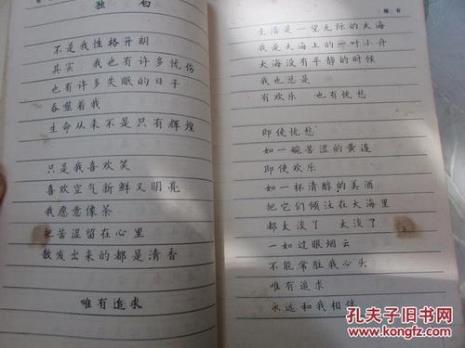 独 白
不是我性格开朗
其实 我也有许多忧伤
也有许多失眠的日子
吞噬着我
生命从来不是只有辉煌
只是我喜欢笑
喜欢空气新鲜又明亮
我愿意像茶
把苦涩留在心里
散发出来的都是清香
唯有追求
生活是一望无际的大海
我是大海上的一叶小舟
大海没有平静的时候
我也总是
有欢乐 也有忧愁
即使忧愁
如一碗苦涩的黄连
即使欢乐
如一杯清醇的美酒
把它们倾注在大海里
都太淡了 太淡了
一如过眼烟云
不能常驻我心头
唯有追求
永远和我相伴
孔夫子旧书网